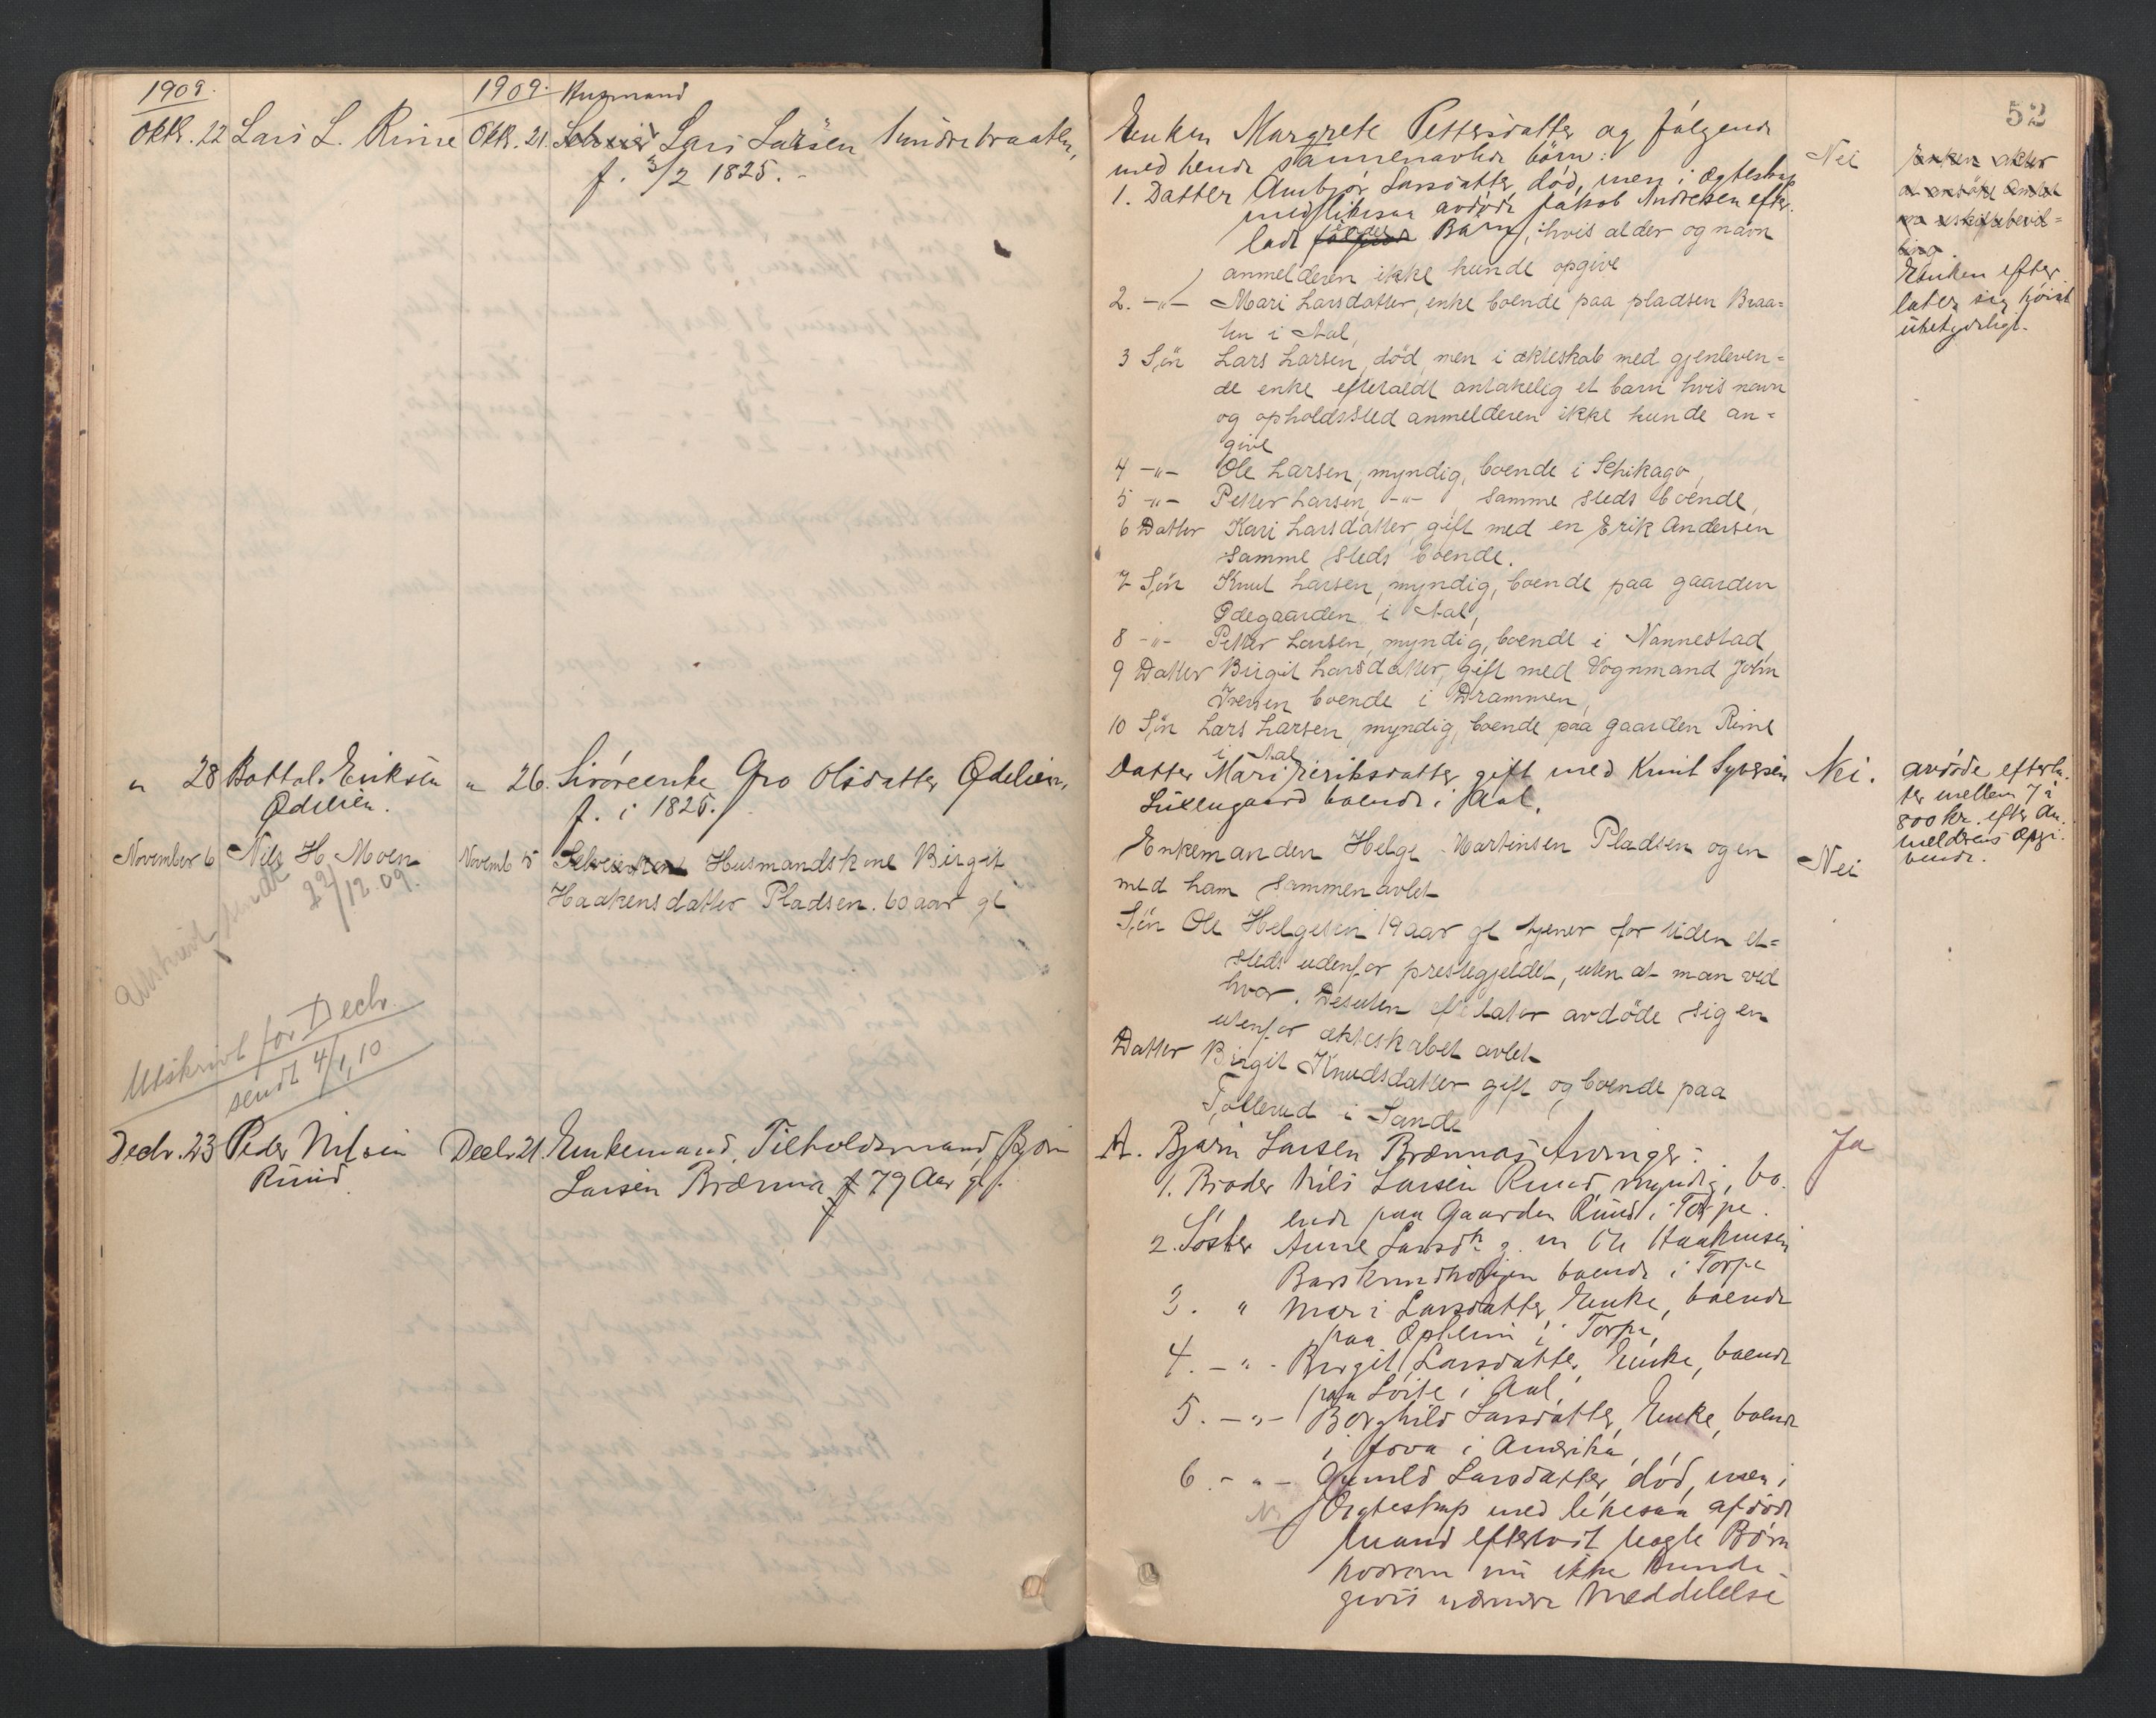 1909.
Oktr. 22 Lars L. Rime
1909. Husmand
Oktr. 21. Lars Larsen Sundrebraaten,
f. 3/2 1825. -
" 28 Bottol. Eriksen
Ødelien.
" 26. Gro Olsdatter Ødelien,
f. i 1825.
November 6 Nils H. Moen
Utskrivt sendt 29/12.09.
Novemb 5 Husmandskone Birgit
Haakensdatter Pladsen. 60 aar gl
Utskrivt for Decbr.
sendt 4/1,10
Decbr. 23 Peder Nilsen
Ruud
Decbr 21. Enkemand, Tilholdsmand, Bjørn
Larsen Brænna 79 Aar gl.
52
Enken Margrete Pettersdatter og følgende
med hende sammenavlede børn:
1. Datter Ambjør Larsdatter, død, men i Ægteskap
med likesaa avdøde Jakob Andresen efter-
lade Børn, hvis alder og navn
anmelderen ikke kunde opgive
2. -"- Mari Larsdatter, enke boende paa pladsen Braa-
ten i Aal,
3 Søn Lars Larsen, død, men i ekteskab med gjenleven-
de enke efteraldt antakelig et barn hvis navn
og opholdssted anmelderen ikke kunde an-
give
4 -"- Ole Larsen, myndig, boende i Schikago,
5 -"- Petter Larsen, -"- samme steds boende,
6 Datter Kari Larsdatter, gift med en Erik Andersen
samme steds boende.
7 Søn Knut Larsen, myndig, boende paa gaarden
Ødegaarden i Aal,
8 -"- Petter Larsen, myndig, boende i Nannestad,
9 Datter Birgit Larsdatter, gift med Vognmand John
Iversen boende i Drammen,
10 Søn Lars Larsen, myndig, boende paa gaarden Rime
i Aal
Nei
Enken akter
at ansøke Amtet
om uskiftebevil-
ling.
Enken efter
later sig høist
ubetydeligt.
Datter Mari Eriksdatter gift med Knut Syversen
boende i Aal.
Nei.
avdøde efterla-
ter mellem 7 à
800 kr. efter An-
melderens Opgi-
vende.
Enkemanden Helge Martinsen Pladsen og en
med ham sammenavlet
Nei
Søn Ole Helgesen 19 aar gl tjener for tiden et-
steds udenfor prestegjeldet, uten at man ved
hvor. Desuten efterlater avdøde sig en
utenfor ækteskabet avlet
Datter Birgit Knudsdatter gift og boende paa
Tollerud i Sande
A. Bjørn Larsen Brænnas Arvinger:
Ja
1. Broder Nils Larsen Ruud, myndig, bo-
ende paa Gaarden Ruud i Torpe.
2. Søster Anne Larsdtr g. m Ole Haakensen
boende i Torpe
3. " Mari Larsdatter, Enke, boende
paa Opheim i Torpe,
4. -"- Birgit Larsdatter, Enke, boende
paa i Aal,
5. -"- Borghild Larsdatter, Enke, boende
i Iova i Amerika,
6. -"- Gunild Larsdatter, død, men i
Ægteskap med likesaa afdøde
Mand efterladt nogle Børn
hvorom nu ikke kunde
givis nærmere Meddelelse